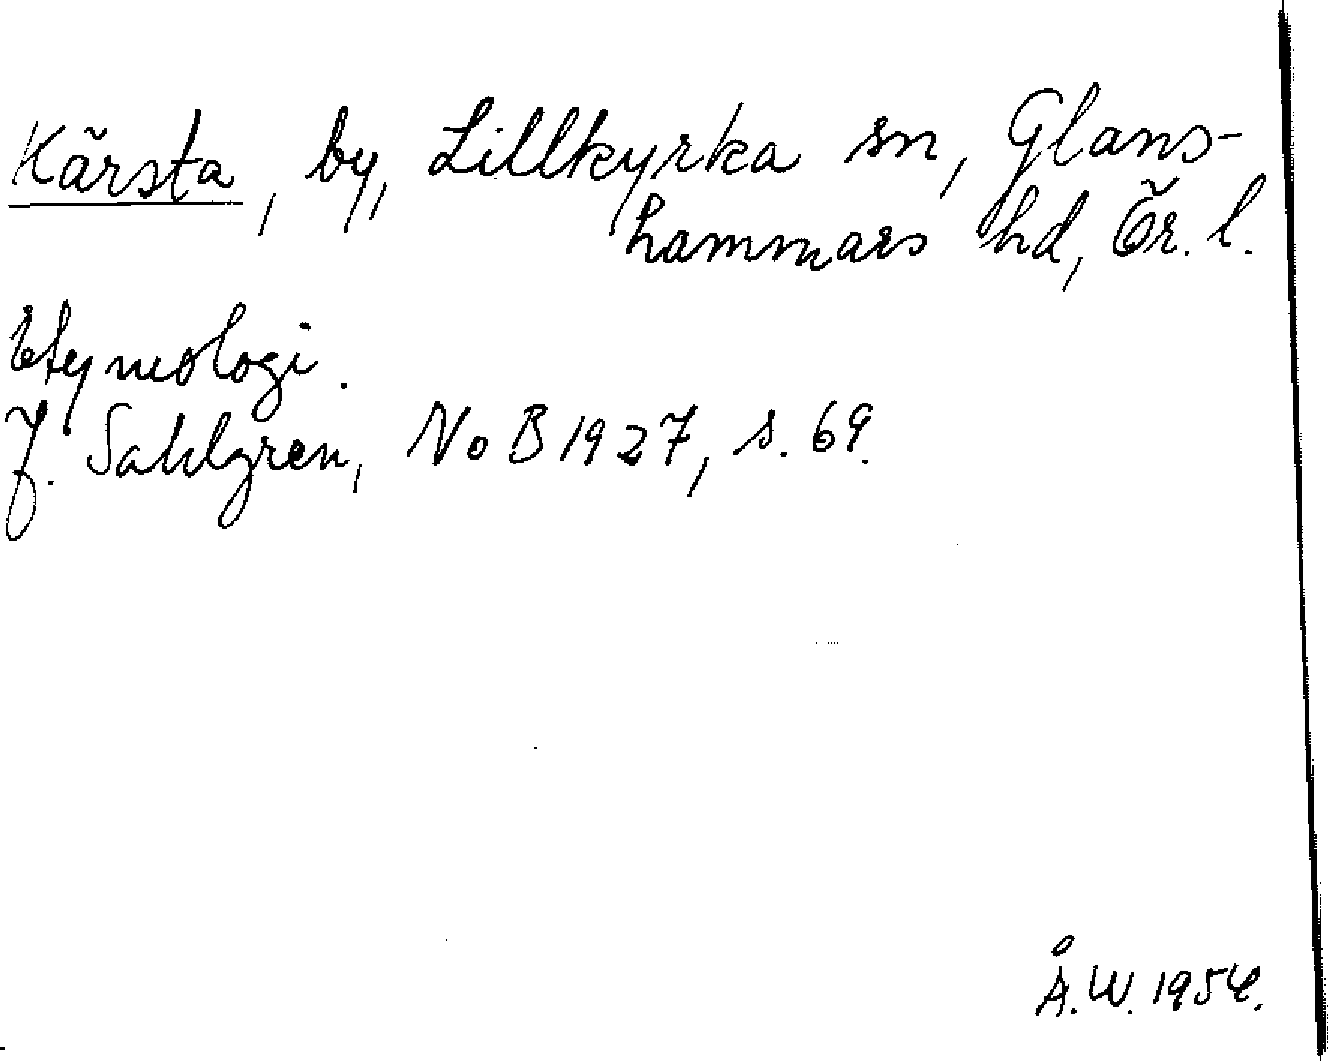 Kärsta, by, Lillkyrka sn, Glans-
hammars hd, Ör. l.
Etymologi.
J. Sahlgren, NoB 1927, s. 69.
Å.W. 1954.